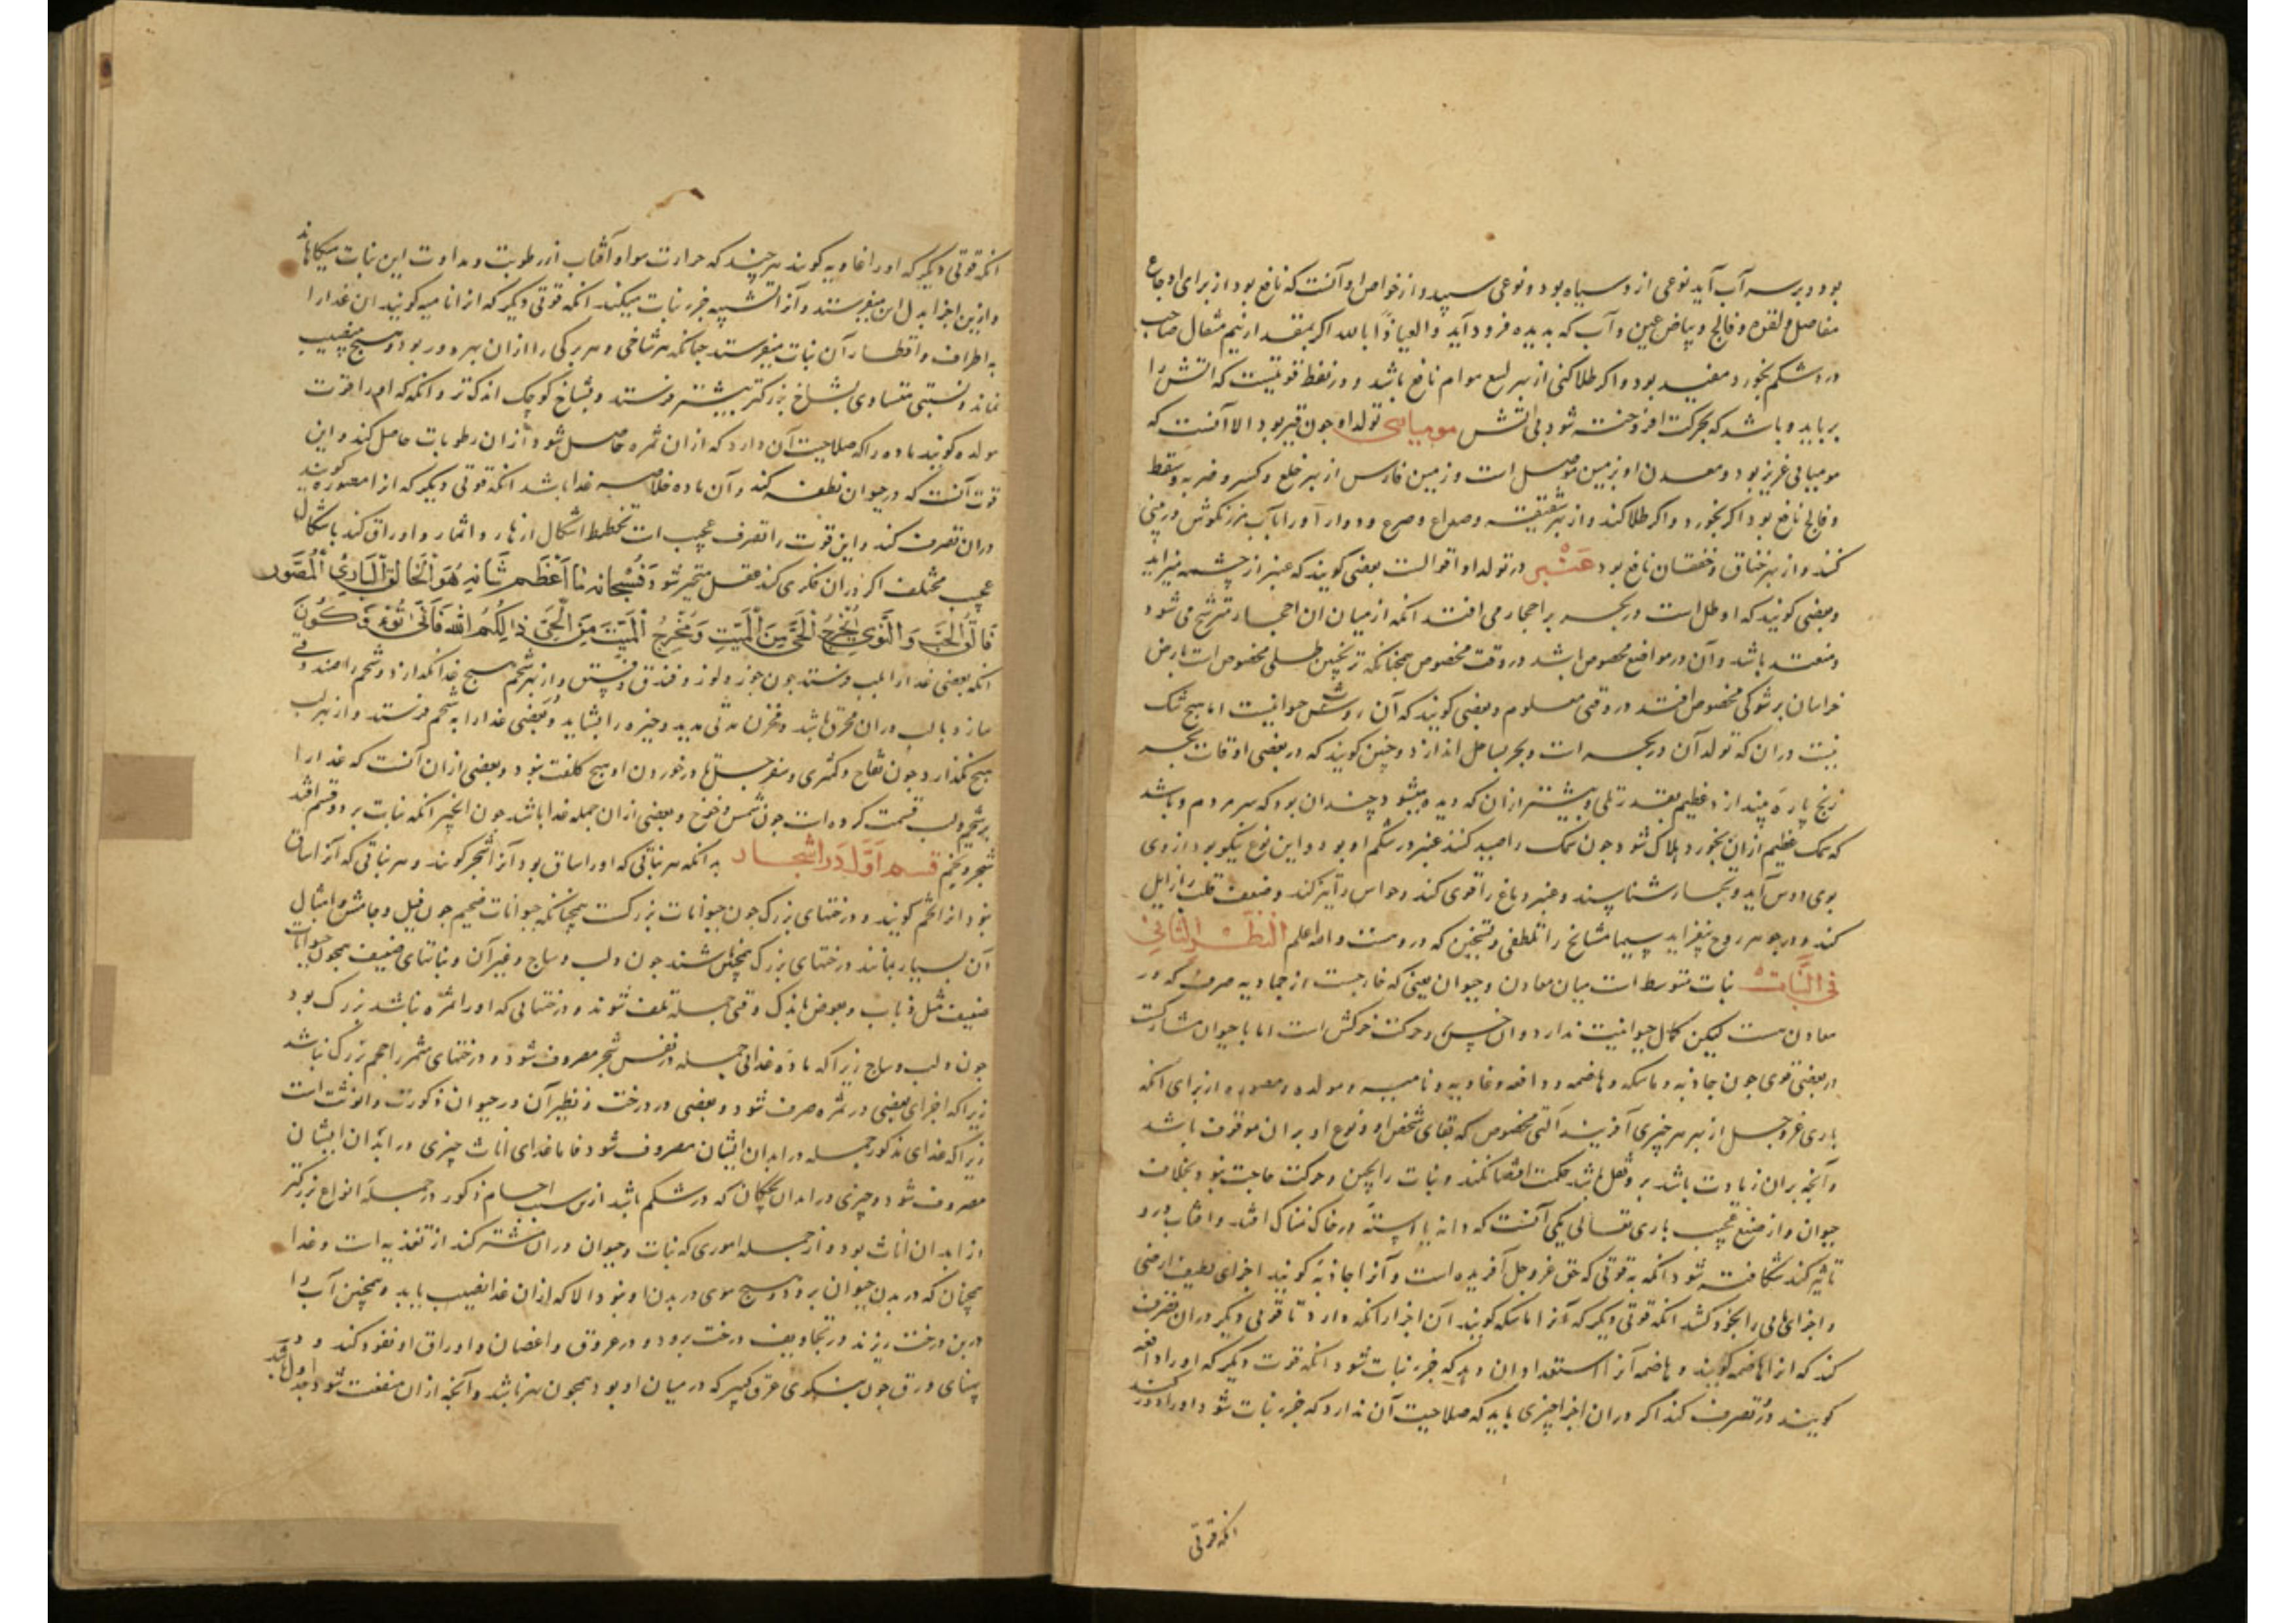 بود و بر سر آب آید نوعی از و سیاه بود و نوعی سپید و از خواص او آنست که نافع بود از برای اوجاع
مفاصل و لقوه و فالج و بیاض عین و آب که بدیده فرود آید و العیاذ بالله اکر بمقدار نیم مثقال صاحب
درد شکم بخورد مفید بود و اکر طلا کنی از بهر لسع هوام نافع باشد و در نفط قوتیست که اتش را
برباید و باشد که بحرکت افروخته شود بی اتش مومیایی تولد او جون قیر بود الا آنست که
مومیایی عزیز بود و معدن او بزمین موصل است و زمین فارس از بهر خلع و کسر و ضربه و سقطه
و فالج نافع بود اکر بخورد و اکر طلا کند و از بهر شقیقه و صداع و صرع و دوار آورا بآب مرزنکوش در بینی
کنند و از بهر خناق و خفقان نافع بود عنبر در تولد او اقوالست بعضی کویند که عنبر از چشمه میزاید
و بعضی کویند که او طل است در بحر بر احجار می افتد انکه از میان ان احجار مترشح می شود
و منعقد باشد و آن در مواضع مخصوص باشد در وقت مخصوص همچنانکه ترنجبین طلی مخصوص است بارض
خراسان بر شوکی مخصوص افتد در وقتی معلوم و بعضی کویند که آن روث حیوانیست اما هیچ شک
نیست دران که تولد آن در بحر است و بحر بساحل اندازد و چنین کویند که در بعضی اوقات بحر
زنج پاره بیندازد عظیم بقدر تلی و بیشتر ازان که دیده میشود چندان بود که سر مردم و باشد
که سمک عظیم ازان بخورد و هلاک شود جون سمک را صید کنند عنبر در شکم او بود و این نوع نیکو بود از وی
بوی آید و تجار شناسند و عنبر دماغ را قوی کند و حواس را تیز کند و ضعف قلب را زایل
کند و در جوهر روح بیفزاید سیما مشایخ را تلطفی و تسخین که دروست والله اعلم النظر الثانی
فی النبات نبات متوسط است میان معادن و حیوان یعنی که خارجست از جمادیه صرف که در
معادن هست لیکن کمال حیوانیت ندارد و ان حس و حرکت است اما با حیوان مشارکت
در بعضی قوی جون جاذبه و ماسکه و هاضمه و دافعه و غاذیه و نامیه و مولده و مصوره از برای انکه
باری عز و جل از بهر هر چیزی آفریند آلتی مخصوص که بقای شخص او و نوع او بران موقوف باشد
و آنچه بران زیادت باشد برو ثقل باشد حکمت اقتضا نکند و نبات را بحس و حرکت حاجت نبود بخلاف
حیوان و از صنع عجیب باری تعالی یکی آنست که دانه یا استه در خاک نمناک افتد و افتاب درو
تاثیر کند شکافته شود انکه به قوتی که حق عز و جل آفریده است و آنرا جاذبه کویند اجزای لطیف ارضی
و اجزای مایی را بخود کشد انکه قوتی دیکر که آنرا ماسکه کویند ان اجزا را نکه دارد تا قوتی دیکر دران تصرف
کند که انرا هاضمه کویند و هاضمه آنرا استعداد ان دهد که جزء نبات شود انکه قوت دیکر که اورا دافعه
کویند در تصرف کند اکر دران اجزا چیزی یابد که صلاحیت آن ندارد که جزء نبات شود اورا دور کند
انکه قوتی
انکه قوتی دیکر که اورا غاذیه کویند هر چند که حرارت هوا و آفتاب از رطوبت و نداوت این نبات میکاهاند
و ازین اجزا بدل ان میفرستد و آنرا تشبیه جزء نبات میکند انکه قوتی دیکر که انرا نامیه کویند ان غذا را
به اطراف و اقطار آن نبات میفرستد چنانکه هر شاخی و هر برکی را ازان بهره ور بود و هیچ بی نصیب
نماند و نسبتی متساوی بشاخ بزرکتر بیشتر فرستد و بشاخ کوچک اندکتر و انکه که اورا قوت
مولده کویند ماده را که صلاحیت آن دارد که ازان ثمره حاصل شود ازان رطوبات حاصل کند و این
قوت آنست که در حیوان نطفه کند و آن ماده خلاصه غذا باشد انکه قوتی دیکر که انرا مصوره کویند
دران تصرف کند و این قوت را تصرف عجیب است تخطیط اشکال ازهار و اثمار و اوراق کند باشکال
عجیب مختلف اکر دران فکری کند عقل متحیر شود فسبحانه ما اعظم شانه هو الخالق البارئ المصور
فالق الحب والنوی یخرج الحی من المیت ومخرج المیت من الحی ذالکم الله فانی تؤفکون
انکه بعضی غذا را بلب فرستد جون جوز و لوز و فندق و فستق و از بهر شحم هیچ غذا نکذارد و شحم را صندوقی
سازد تا لب دران محرز باشد و مخزن مدتی مدید ذخیره را بشاید و بعضی غذا را به شحم فرستد و از بهر لب
هیچ نکذارد جون تفاح و کمثری و سفرجل تا در خوردن او هیچ کلفت نبود و بعضی ازان آنست که غذا را
بر شحم و لب قسمت کرده است جون مشمش و خوخ و بعضی ازان جمله غذا باشد جون انجیر انکه نبات بر دو قسم افتد
شجر و نجم قسم اول در اشجار بدانکه هر نباتی که اورا ساق بود آنرا شجر کویند و هر نباتی که آنرا ساق
نبود انرا نجم کویند و درختهای بزرک جون حیوانات بزرکست همچنانکه حیوانات ضخیم جون فیل و جاموش و امثال
آن بسیار بمانند درختهای بزرک همچنین باشند جون دلب و ساج و غیر آن و نباتهای ضعیف همچون حیوانات
ضعیف مثل ذباب و بعوض باندک وقتی جمله تلف شوند و درختهایی که اورا ثمره نباشد بزرک بود
جون دلب و ساج زیرا که ماده غذایی جمله در نفس شجر مصروف شود و درختهای مثمر را حجم بزرک نباشد
زیرا که اجزای بعضی در ثمره صرف شود و بعضی در درخت و نظیر آن در حیوان ذکورت و انوثت است
زیرا که غذای ذکور جمله در ابدان ایشان مصروف شود فاما غذای اناث چیزی در ابدان ایشان
مصروف شود و چیزی در ابدان بچکان که در شکم باشد ازین سبب اجسام ذکور در جمله انواع بزرکتر
از ابدان اناث بود و از جمله اموری که نبات و حیوان دران مشترکند از تغذیه است و غذا
همچنان که در بدن حیوان برود و هیچ موی در بدن او نبود الا که ازان غذا نصیب یابد و همچنین آب را
در بن درخت ریزند در تجاویف درخت برود و در عروق و اغصان و اوراق او نفوذ کند و در
پهنای ورق جون بنکری عرق کبیر که در میان او بود همچون نهر باشد و آنچه ازان منشعب شود جداول